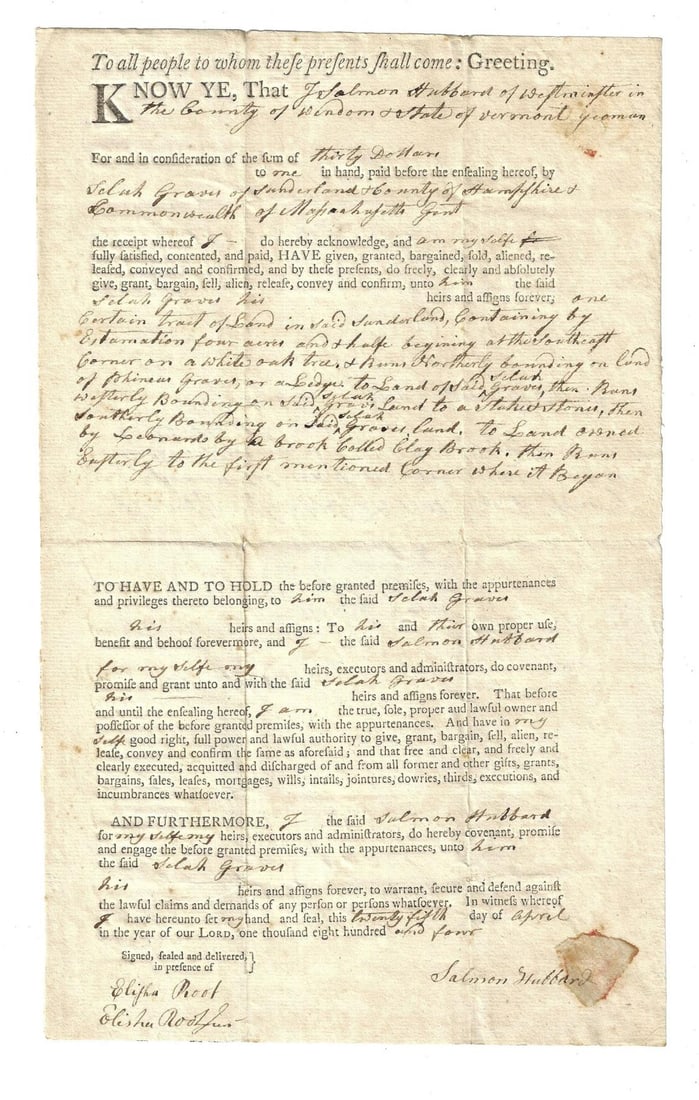 To all people to whom theſe preſents ſhall come: Greeting.
KNOW YE, That I Salmon Hubbard of Weſtminſter in
the County of Windom & State of Vermont yeoman
For and in conſideration of the ſum of thirty Dollars
to me in hand, paid before the enſealing hereof, by
Selah Graves of Sunderland & County of Hampſhire &
Commonwealth of Maſsachuſetts Gent
the receipt whereof I — do hereby acknowledge, and am my ſelfe
fully ſatisfied, contented, and paid, HAVE given, granted, bargained, ſold, aliened, re-
leaſed, conveyed and confirmed, and by theſe preſents, do freely, clearly and abſolutely
give, grant, bargain, ſell, alien, releaſe, convey and confirm, unto him the ſaid
Selah Graves his heirs and aſſigns forever, one
Certain tract of Land in said Sunderland, Containing by
Estamation four acres and & halfe begining at the Southeaſt
Corner on a white oak tree, & Runs Northerly bounding on land
of Phineus Graves, or a Ledge to Land of Said Selah Graves, then Runs
westerly Bounding on Said Selah Graves Land to a Stake & stones, then
Southerly Bounding on Said Selah Graves, land. to Land owned
by Leonards by a brook Called Clay Brook. then Runs
Easterly to the first mentioned Corner where it Began
TO HAVE AND TO HOLD the before granted premiſes, with the appurtenances
and privileges thereto belonging, to him the ſaid Selah Graves
his heirs and aſſigns: To his and thir own proper uſe,
benefit and behoof forevermore, and I — the ſaid Salmon Hubbard
for my Selfe my heirs, executors and adminiſtrators, do covenant,
promiſe and grant unto and with the ſaid Selah Graves
his heirs and aſſigns forever. That before
and until the enſealing hereof, I am the true, ſole, proper aud lawful owner and
poſſeſſor of the before granted premiſes, with the appurtenances. And have in my
Self good right, full power and lawful authority to give, grant, bargain, ſell, alien, re-
leaſe, convey and confirm the ſame as aforeſaid; and that free and clear, and freely and
clearly executed, acquitted and diſcharged of and from all former and other gifts, grants,
bargains, ſales, leaſes, mortgages, wills, intails, jointures, dowries, thirds, executions, and
incumbrances whatſoever.
AND FURTHERMORE, I the ſaid Salmon Hubbard
for my Selfe my heirs, executors and adminiſtrators, do hereby covenant, promiſe
and engage the before granted premiſes, with the appurtenances, unto him
the ſaid Selah Graves
his heirs and aſſigns forever, to warrant, ſecure and defend againſt
the lawful claims and demands of any perſon or perſons whatſoever. In witneſs whereof
I have hereunto ſet my hand and ſeal, this twenty fifth day of April
in the year of our LORD, one thouſand eight hundred and four
Signed, ſealed and delivered,
in preſence of
Eliſha Root
Elisha Root Jun
Salmon Hubbard